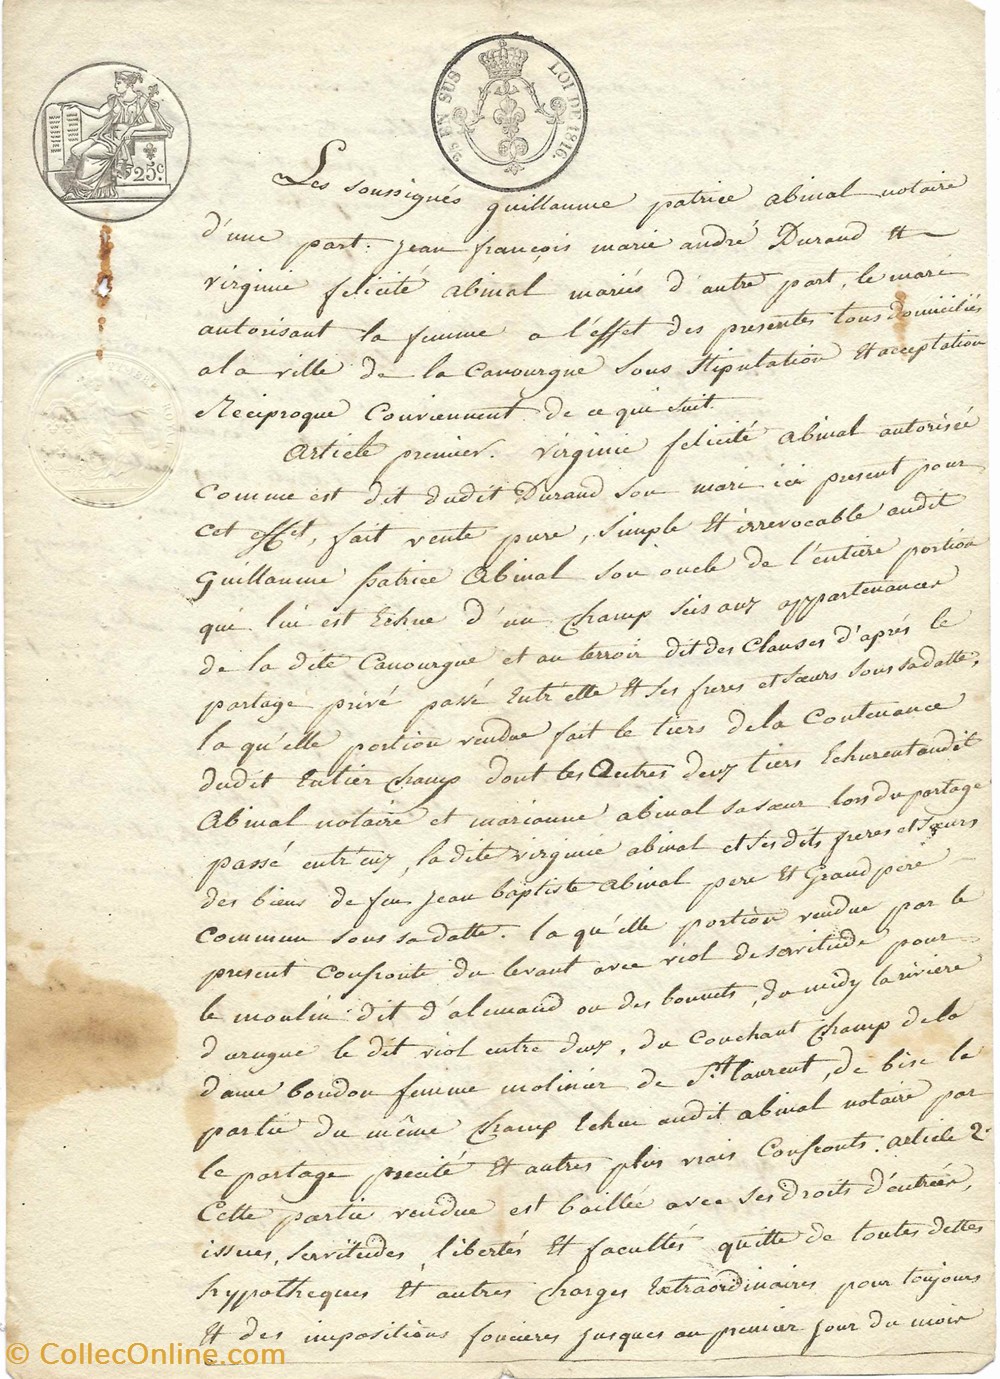 25 EN SUS LOI DE 1816.
25c.
Les soussignés guillaume patrice abinal notaire
d'une part. jean françois marie andré Durand Et
virginie felicité abinal mariés d'autre part, le mari
autorisant la femme a l'effet des presentes tous domiciliés
a la ville de la Canourgue sous stipulation Et acceptation
Réciproque Conviennent de ce qui suit.
Article premier. virginie felicité abinal autorisée
comme est dit dudit Durand son mari ici present pour
cet effet, fait vente pure, simple Et irrevocable audit
Guillaume patrice Abinal son oncle de l'entière portion
qui lui est Echue d'un champ sis aux appartenances
de la dite Canourgue et au terroir dit des Clauses d'aprés le
partage privé passé Entr'elle Et ses freres et sœurs sous sa datte,
la qu'elle portion vendue fait le tiers de la Contenance
dudit Entier champ dont les Autres deux tiers Echurent audit
Abinal notaire et marianne abinal sa sœur lors du partage
passé entr'eux, la dite virginie abinal et ses dits freres et sœurs
des biens de feu jean baptiste abinal pere Et Grand pere
commun sous sa datte. la qu'elle portion vendue par le
present confronte du levant avec viol de servitude pour
le moulin dit d'alemand ou des bonnets, du midy la rivière
d'urugne le dit viol entre deux, du Couchant champ de la
dame boudon femme molinier de St laurent, de bise la
partie du même champ Echue audit abinal notaire par
le partage precité Et autres plus vrais Confronts. article 2.
Cette partie vendue est baillée avec ses droits d'entrées,
issues, servitudes, libertés Et facultés quitte de toutes dettes
hypotheques Et autres charges Extraordinaires pour toujours
Et des impositions foncieres jusques au premier jour du mois
© CollecOnline.com